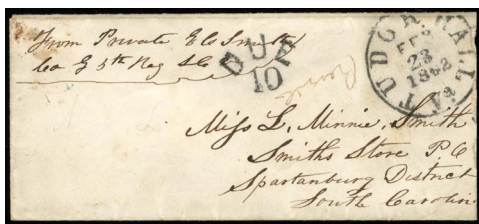 From Private E Co Smith
Co G 5th Reg SC
DUE
10
TUDOR HALL
FEB
23
1862
Va
Miss L. Minnie, Smith
Smiths Store P.O
Spartanburg District
South Carolina